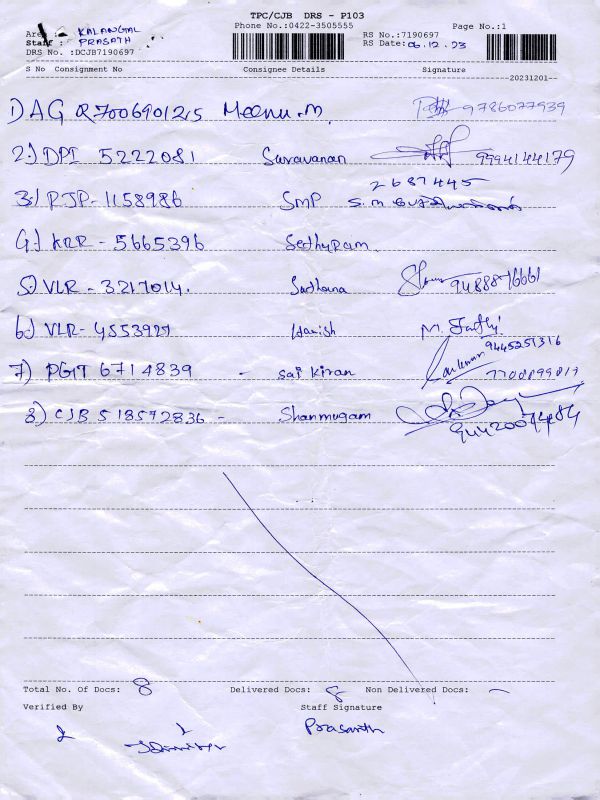 TPC/CJB DRS - P103
Phone No.:0422-3505555 Page No.:1
Area : KALANGAL RS No.:7190697
Staff : PRASATH RS Date: 06.12.23
DRS No. :DCJB7190697
S No Consignment No Consignee Details Signature
20231201
1) DAG Q7006901215 Meenu.M 9786077939
2) DPI 5222081 Saravanan 9994144179
2687445
3) RJP - 1158986 SMP S.M
4) KRR - 5665396 Sethuram
5) VLR - 3217014. Sadhana 9488876661
6) VLR - 4553927 Harish M.
7) PGT 6714839 - Sai Kiran 9445251316
8) CJB 518572836 - Shanmugam
Total No. Of Docs: 8 Delivered Docs: 8 Non Delivered Docs: -
Verified By Staff Signature
Prasanth